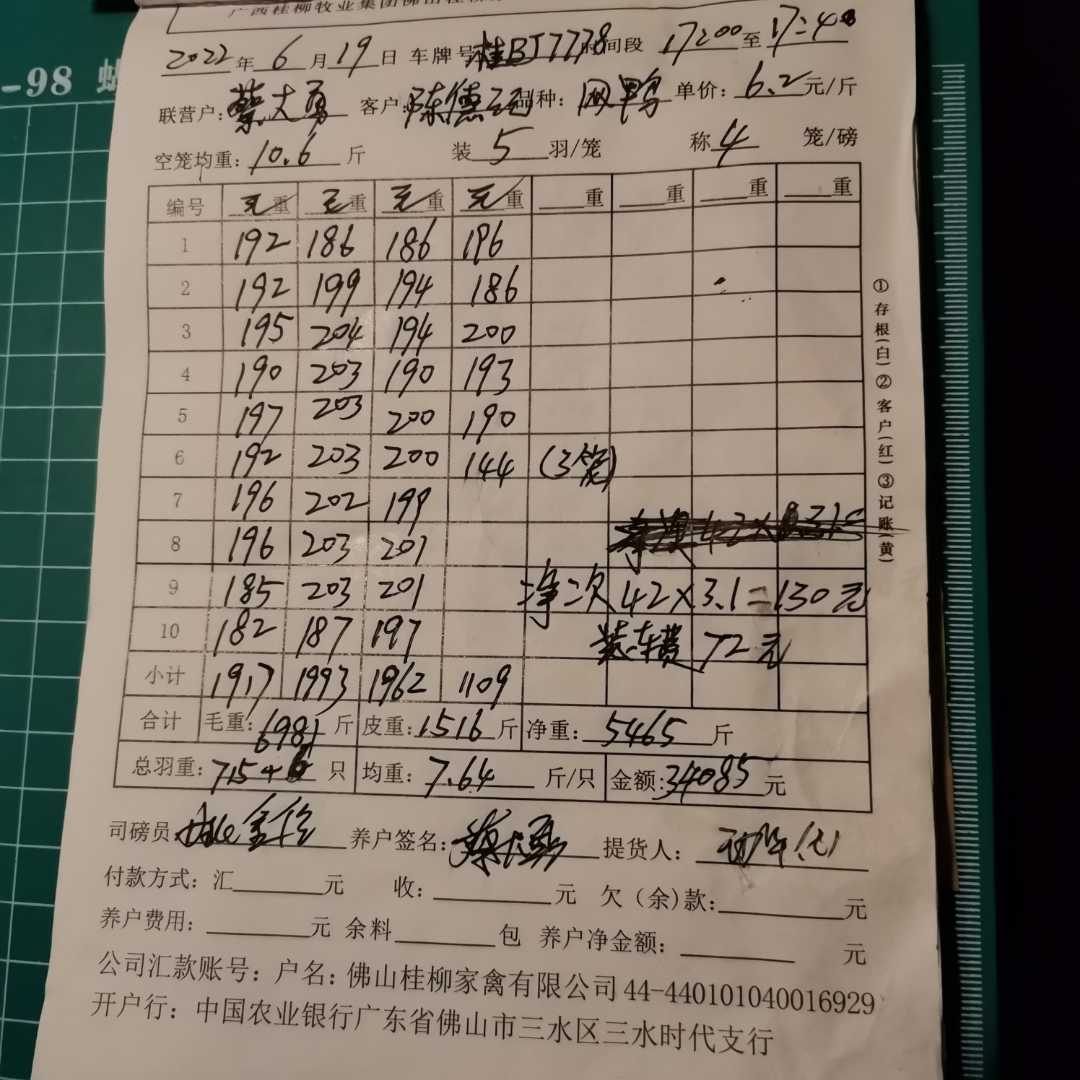 广西桂柳牧业集团佛山桂柳
-98
2022年6月19日 车牌号桂BJ7778 时间段17:00至17:40
联营户:蔡大勇 客户:陈德 品种: 单价:6.2元/斤
空笼均重:10.6斤 装5羽/笼 称4笼/磅
编号 毛重 毛重 毛重 毛重 重 重 重 重
1 192 186 186 196
2 192 199 194 186
3 195 204 194 200
4 190 203 190 193
5 197 203 200 190
6 192 203 200 144 (3笼)
7 196 202 199
8 196 203 201
9 185 203 201 净次 42×3.1=130元
10 182 187 197 装车费 72元
小计 1917 1993 1962 1109
合计 毛重:6981斤 皮重:1516斤 净重:5465斤
总羽重:715+ 只 均重:7.64斤/只 金额:34085元
司磅员 养户签名: 提货人:
付款方式:汇 元 收: 元 欠(余)款: 元
养户费用: 元 余料 包 养户净金额: 元
公司汇款账号:户名:佛山桂柳家禽有限公司44-440101040016929
开户行:中国农业银行广东省佛山市三水区三水时代支行
①存根(白)②客户(红)③记账(黄)